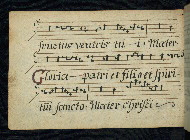 fructus ventris tu i Mater
Gloria patri et filio et spiri
tui sancto Mater christi